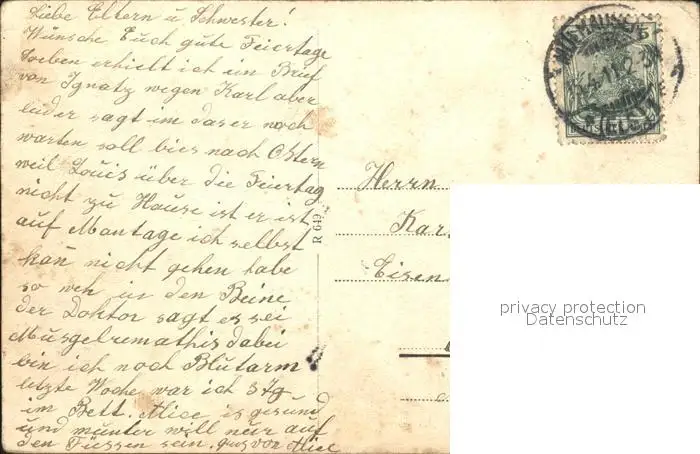 Liebe Eltern u Schwester!
Wünsche Euch gute Feiertage
Soeben erhielt ich im Brief
von Ignatz wegen Karl aber
leider sagt im das er noch
warten soll bies nach Ostern
weil Louis über die Feiertag
nicht zu Hause ist er ist
auf Montage ich selbst
kan nicht gehen habe
so weh in den Beine
der Doktor sagt es sei
Musgelremathis dabei
bin ich noch Blutarm
letzte Woche war ich 3 Tg
im Bett. Alice is gesund
und munter will nur auf
den Füssen sein. von Alice
R 649
MÜLHAUSEN
(ELS.)
Herrn
Kar
Eisen
privacy protection
Datenschutz